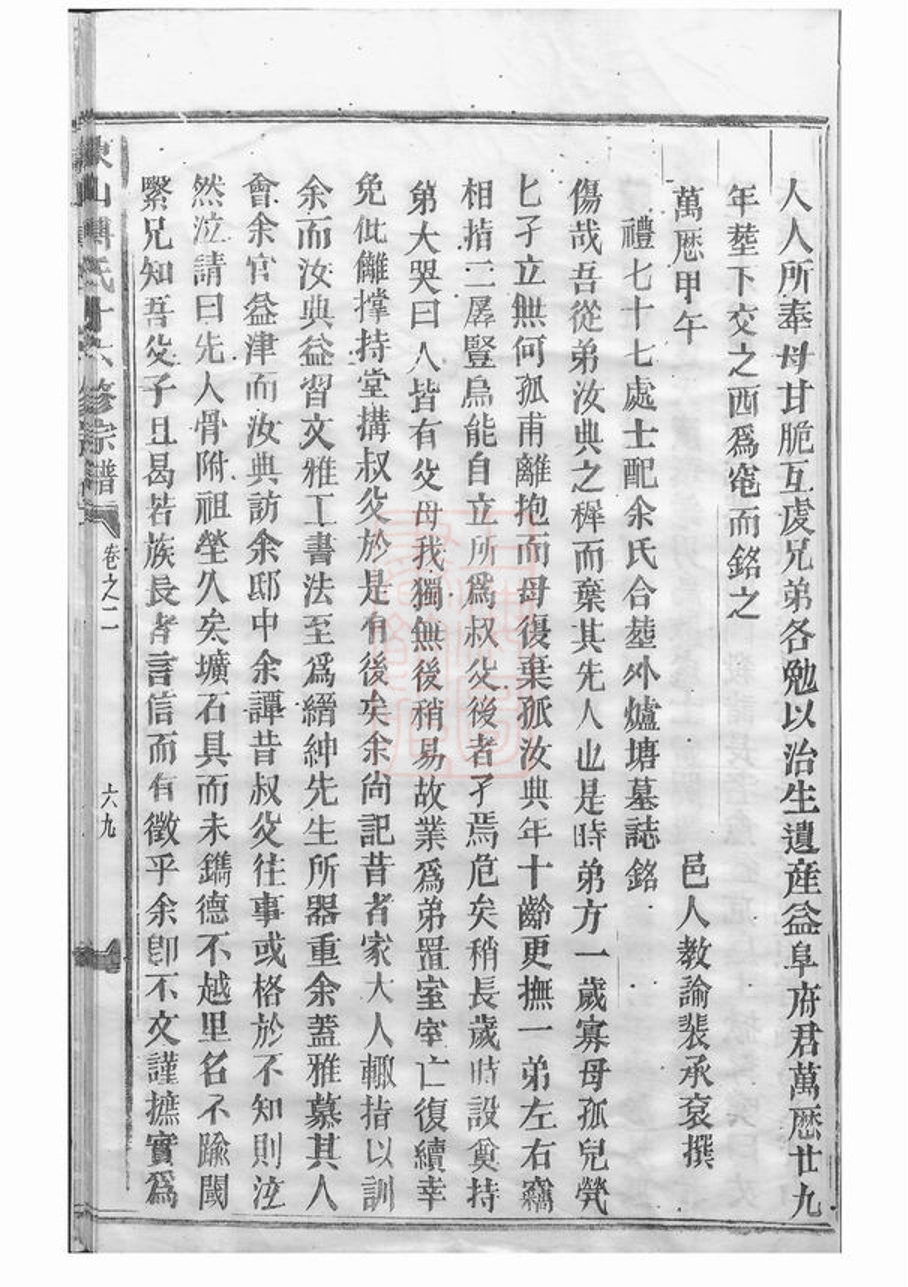 人人所奉母甘脆互虔兄弟各勉以治生遺産益阜府君萬厯廿九
年塟下交之西爲窀而銘之
萬厯甲午　　邑人教諭裴承袞撰
禮七十七處士配余氏合塟外爐塘墓誌銘
傷哉吾從弟汝典之穉而棄其先人也是時弟方一歲寡母孤兒煢
匕孑立無何孤甫離抱而母復棄孤汝典年十齡更撫一弟左右竊
相指二孱豎烏能自立所爲叔父後者孑焉危矣稍長歲時設奠持
弟大哭曰人皆有父母我獨無後稍易故業爲弟置室室亡復續幸
免仳離撑持堂搆叔父於是有後矣余尚記昔者家大人輙指以訓
余而汝典益習文雅工書法至爲縉紳先生所器重余蓋雅慕其人
會余官益津而汝典訪余邸中余譚昔叔父往事或格於不知則泣
然泣請曰先人骨附祖塋久矣壙石具而未鐫德不越里名不踰閾
緊兄知吾父子且曷若族長者言信而有徵乎余卽不文謹摭實爲
山傅氏十六修宗譜　卷之二　六九